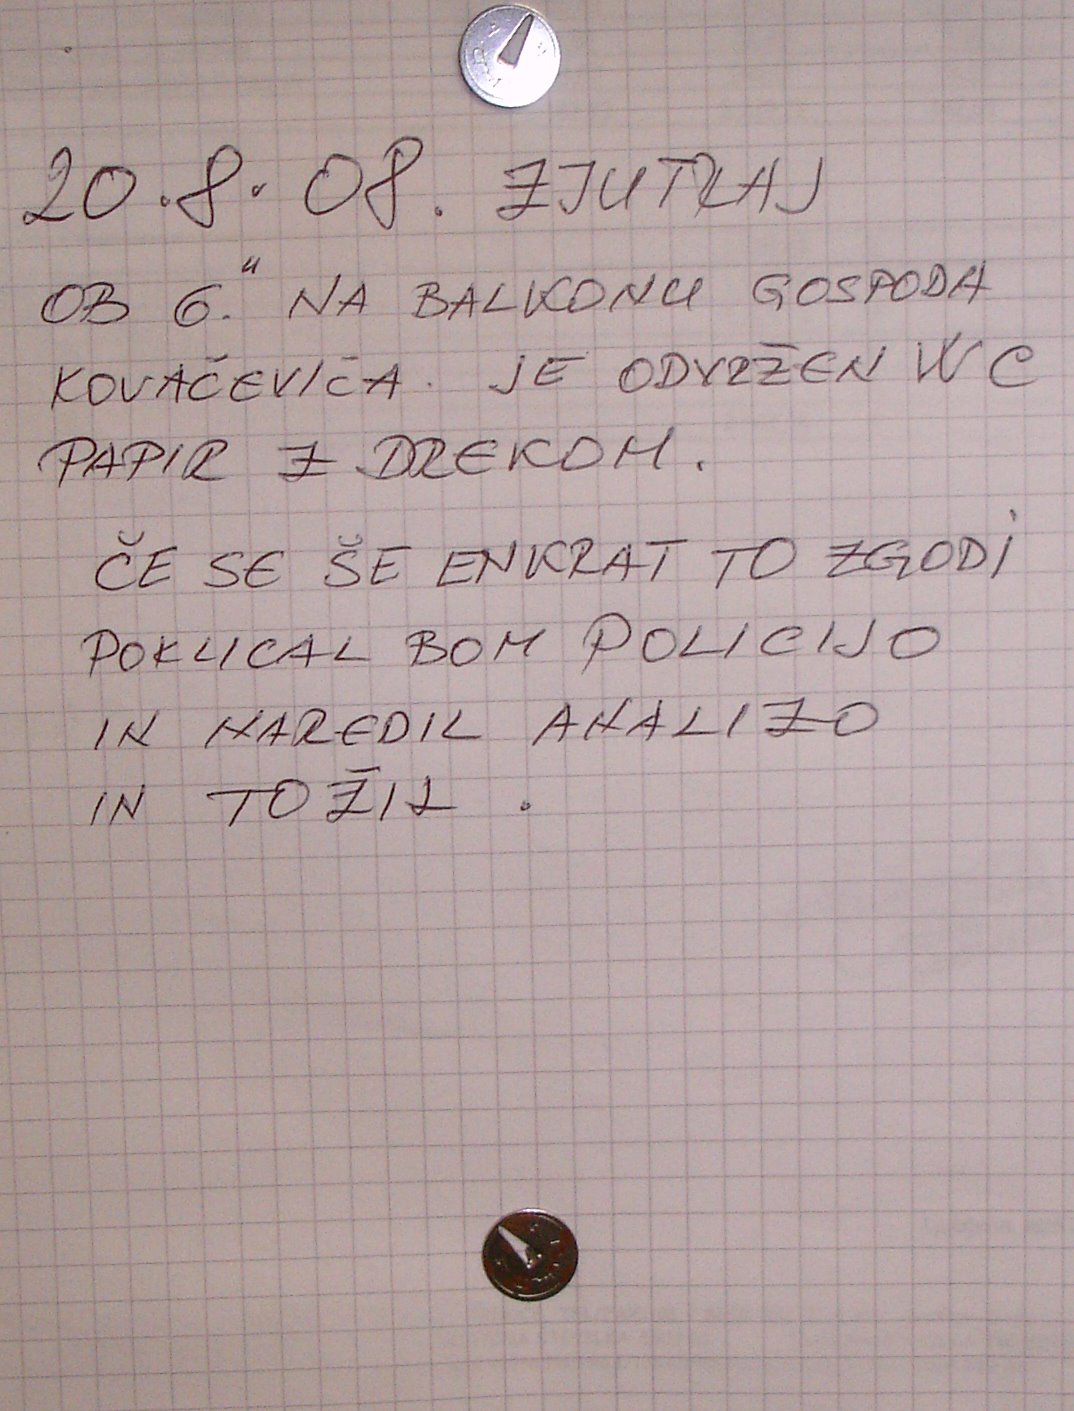 20.8.08. ZJUTRAJ
OB 6." NA BALKONU GOSPODA
KOVAČEVIČA. JE ODVRŽEN WC
PAPIR Z DREKOM.
ČE SE ŠE ENKRAT TO ZGODI
POKLICAL BOM POLICIJO
IN NAREDIL ANALIZO
IN TOŽIL.